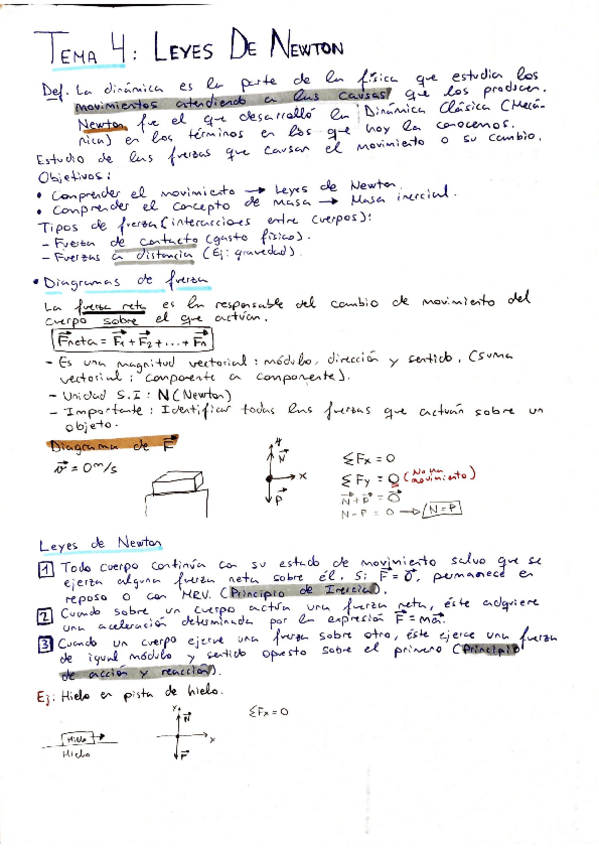 TEMA 4: LEYES DE NEWTON
Def. La dinámica es la parte de la física que estudia los
movimientos atendiendo a las causas que los producen.
Newton fue el que desarrolló la Dinámica Clásica (Mecá-
nica) en los términos en los que hoy la conocemos.
Estudio de las fuerzas que causan el movimiento o su cambio.
Objetivos:
• Comprender el movimiento → Leyes de Newton.
• Comprender el concepto de masa → Masa inercial.
Tipos de fuerza (interacciones entre cuerpos):
- Fuerza de contacto (gasto físico).
- Fuerzas a distancia (Ej: gravedad).
• Diagramas de fuerza
La fuerza neta es la responsable del cambio de movimiento del
cuerpo sobre el que actúan.
F⃗neta = F⃗1 + F⃗2 + ... + F⃗n
- Es una magnitud vectorial: módulo, dirección y sentido. (Suma
vectorial: componente a componente).
- Unidad S.I: N (Newton)
- Importante: Identificar todas las fuerzas que actúan sobre un
objeto.
Diagrama de F⃗
v⃗ = 0 m/s
y
N⃗
x
P⃗
ΣFx = 0
ΣFy = 0 (No hay movimiento)
N⃗ + P⃗ = 0⃗
N - P = 0 → N = P
Leyes de Newton
1 Todo cuerpo continúa con su estado de movimiento salvo que se
ejerza alguna fuerza neta sobre él. Si F⃗ = 0⃗, permanece en
reposo o con MRU. (Principio de Inercia).
2 Cuando sobre un cuerpo actúa una fuerza neta, éste adquiere
una aceleración determinada por la expresión F⃗ = ma⃗.
3 Cuando un cuerpo ejerce una fuerza sobre otro, éste ejerce una fuerza
de igual módulo y sentido opuesto sobre el primero (Principio
de acción y reacción).
Ej: Hielo en pista de hielo.
Hielo
Hielo
y
N⃗
x
P⃗
ΣFx = 0